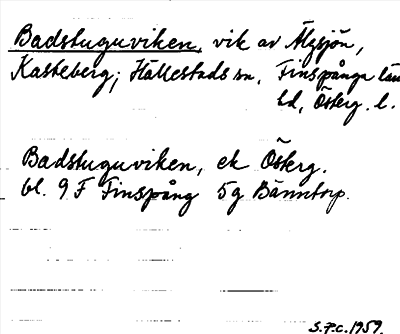 Badstuguviken, vik av Älgsjön,
Kasteberg, Hällestads sn, Finspånga län
hd, Österg. l.
Badstuguviken, ek Österg.
bl. 9 F Finspång 5g Bänntorp.
S.P.C. 1959.